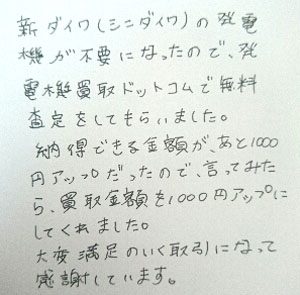 新ダイワ(シンダイワ)の発電
機が不要になったので、発
電機買取ドットコムで無料
査定をしてもらいました。
納得できる金額が、あと1000
円アップだったので、言ってみた
ら、買取金額を1000円アップに
してくれました。
大変満足のいく取引になって
感謝しています。